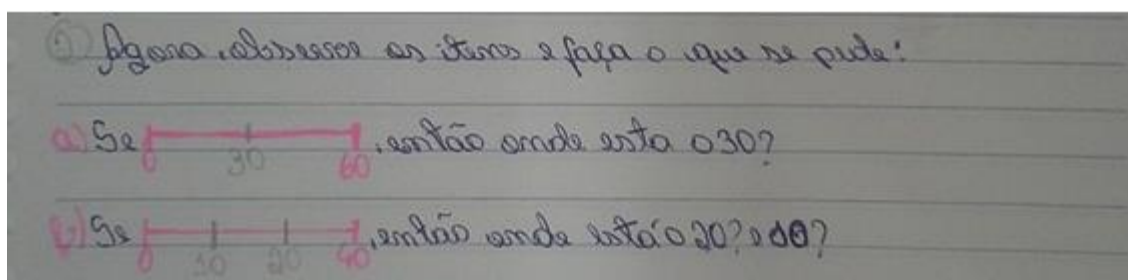 1) Agora, observe os itens e faça o que se pede:
a) Se 0 30 60, então onde esta o 30?
b) Se 0 10 20 40, então onde está o 20? e o 10?